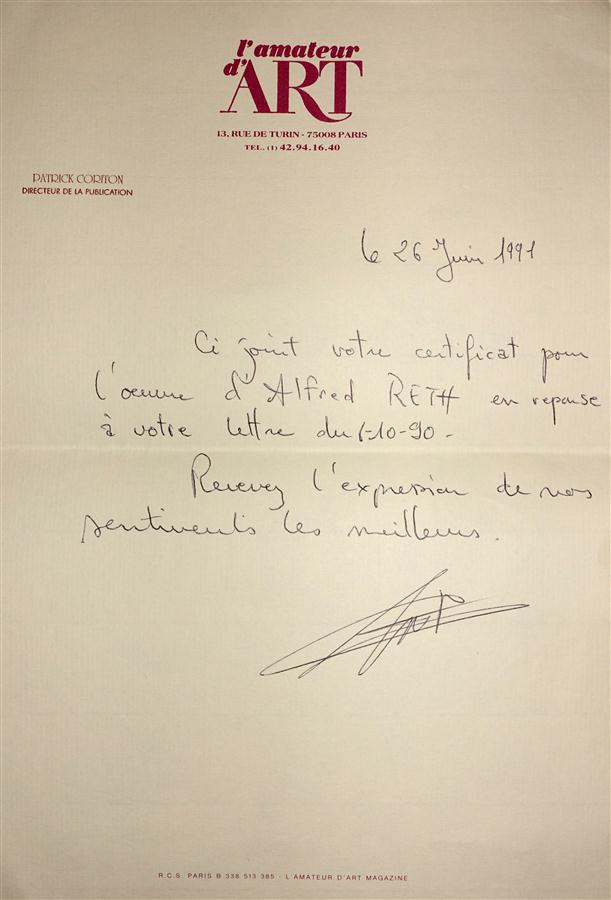 l'amateur
d'ART
13, RUE DE TURIN - 75008 PARIS
TEL. (1) 42.94.16.40
PATRICK CORITON
DIRECTEUR DE LA PUBLICATION
le 26 Juin 1991
Ci joint votre certificat pour
l'oeuvre d'Alfred RETH en reponse
à votre lettre du 1-10-90-
Recevez l'expression de nos
sentiments les meilleurs.
R.C.S. PARIS B 338 513 385 - L'AMATEUR D'ART MAGAZINE